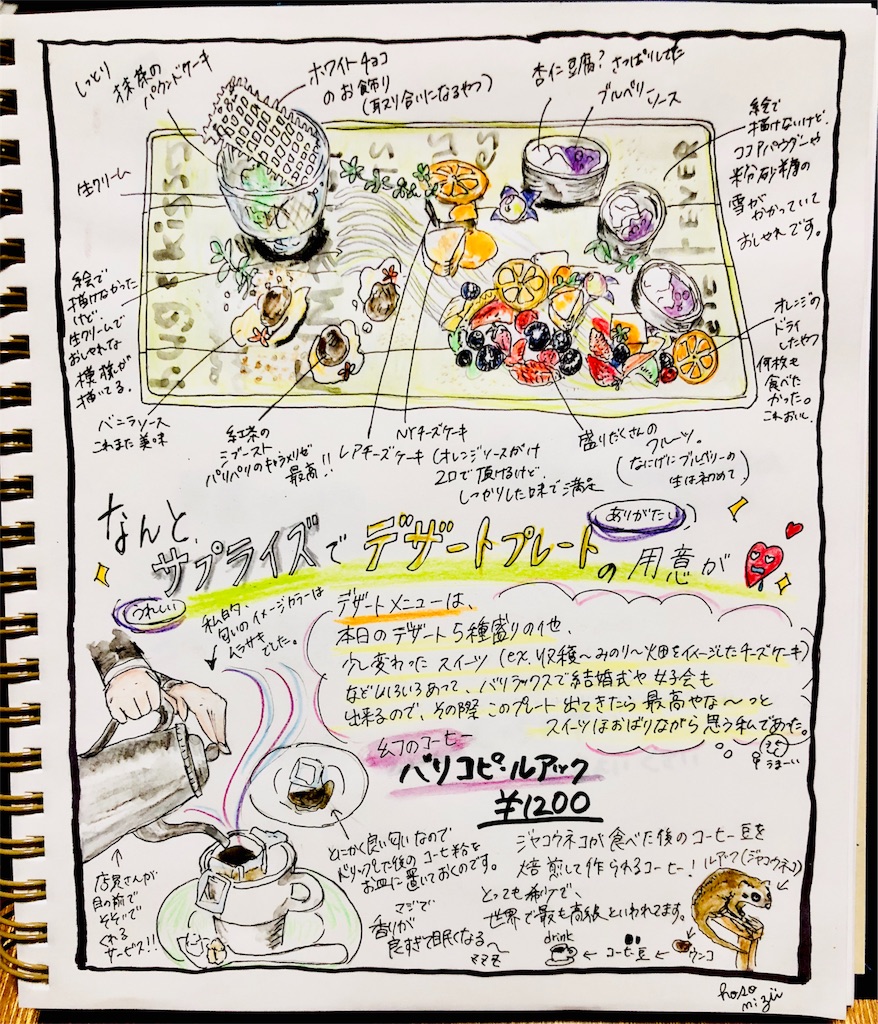 しっとり
抹茶の
パウンドケーキ
ホワイトチョコ
のお飾り
(耳より合いになるやつ)
杏仁豆腐?さっぱりしてた
ブルベリー
ソース
絵で
描けないけど、
ココアパウダーや
粉砂糖の
雪が
かかっていて
おしゃれです。
生クリーム
hug & kisses
FEVER
絵で
描けなかった
けど、
生クリームで
おしゃれな
模様が
描いてる。
オレンジの
ドライ
したやつ
何枚も
食べた
かった。
これおいし
バニラソース
これまた美味
紅茶の
シブースト
パリパリのキャラメリゼ
最高!!
レアチーズケーキ
NYチーズケーキ
(オレンジソースがけ
2口で頂けるけど、
しっかりした味で満足
盛りだくさんの
フルーツ。
(なにげにブルベリーの
生は初めて)
なんと
サプライズで デザートプレートの用意が
ありがたい
うれしい
私的、
匂いのイメージカラーは
ムラサキ
でした。
デザートメニューは、
本日のデザート5種盛りの他、
少し変わったスイーツ(ex.収穫~みのり~畑をイメージしたチーズケーキ)
などいろいろあって、バリラックスで結婚式や女子会も
出来るので、その際このプレート出てきたら最高やな~っと
スイーツほおばりながら思う私であった。
うまーい
幻のコーヒー
バリコピ・ルアック
¥1200
とにかく良い匂いなので
ドリップした後のコーヒー粉を
お皿に置いておくのです。
マジで
香りが
良すぎて眠くなる~
ママ
店員さんが
目の前で
そそいで
くれる
サービス!!
ジャコウネコが食べた後のコーヒー豆を
焙煎して作られるコーヒー!
ルアーク(ジャコウネコ)
とっても希少で、
世界で最も高級といわれてます。
drink
← コーヒー豆 ← ウンコ
hoso
mizu